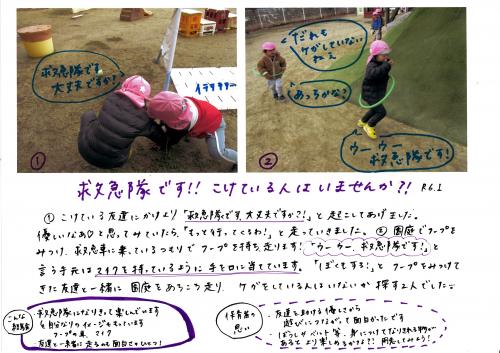 救急隊です
大丈夫ですか?
①
だれも
ケガしていない
ねぇ
あっちかな?
②
ウーウー
救急隊です!
救急隊です!! こけている人はいませんか?! R6.1
① こけている友達にかけより「救急隊です、大丈夫ですか?!」と起こしてあげました。
優しいなぁ♡と思ってみていたら、「もっと行ってくるわ!」と走っていきました。② 園庭でフープを
みつけ、救急車に乗っているつもりでフープを持ち走ります!「ウーウー、救急隊です!」と
言う手元はマイクを持っているように手を口に当てています。「ぼくもする!」とフープをみつけて
きた友達と一緒に園庭をあちこち走り、ケガをしている人はいないか探す2人でした…
こんな
救急隊になりきって楽しんでいます
自分なりのイメージをもっています
フープの車、マイク
友達と一緒に走るのも面白さのひとつ!
保育者の
思い
・友達を助ける優しさから
遊びにつながって面白かったです
・ぼうしやベルト等、身につけてなりきれる物が
あるとより楽しめるかな?! 用意してみよう!